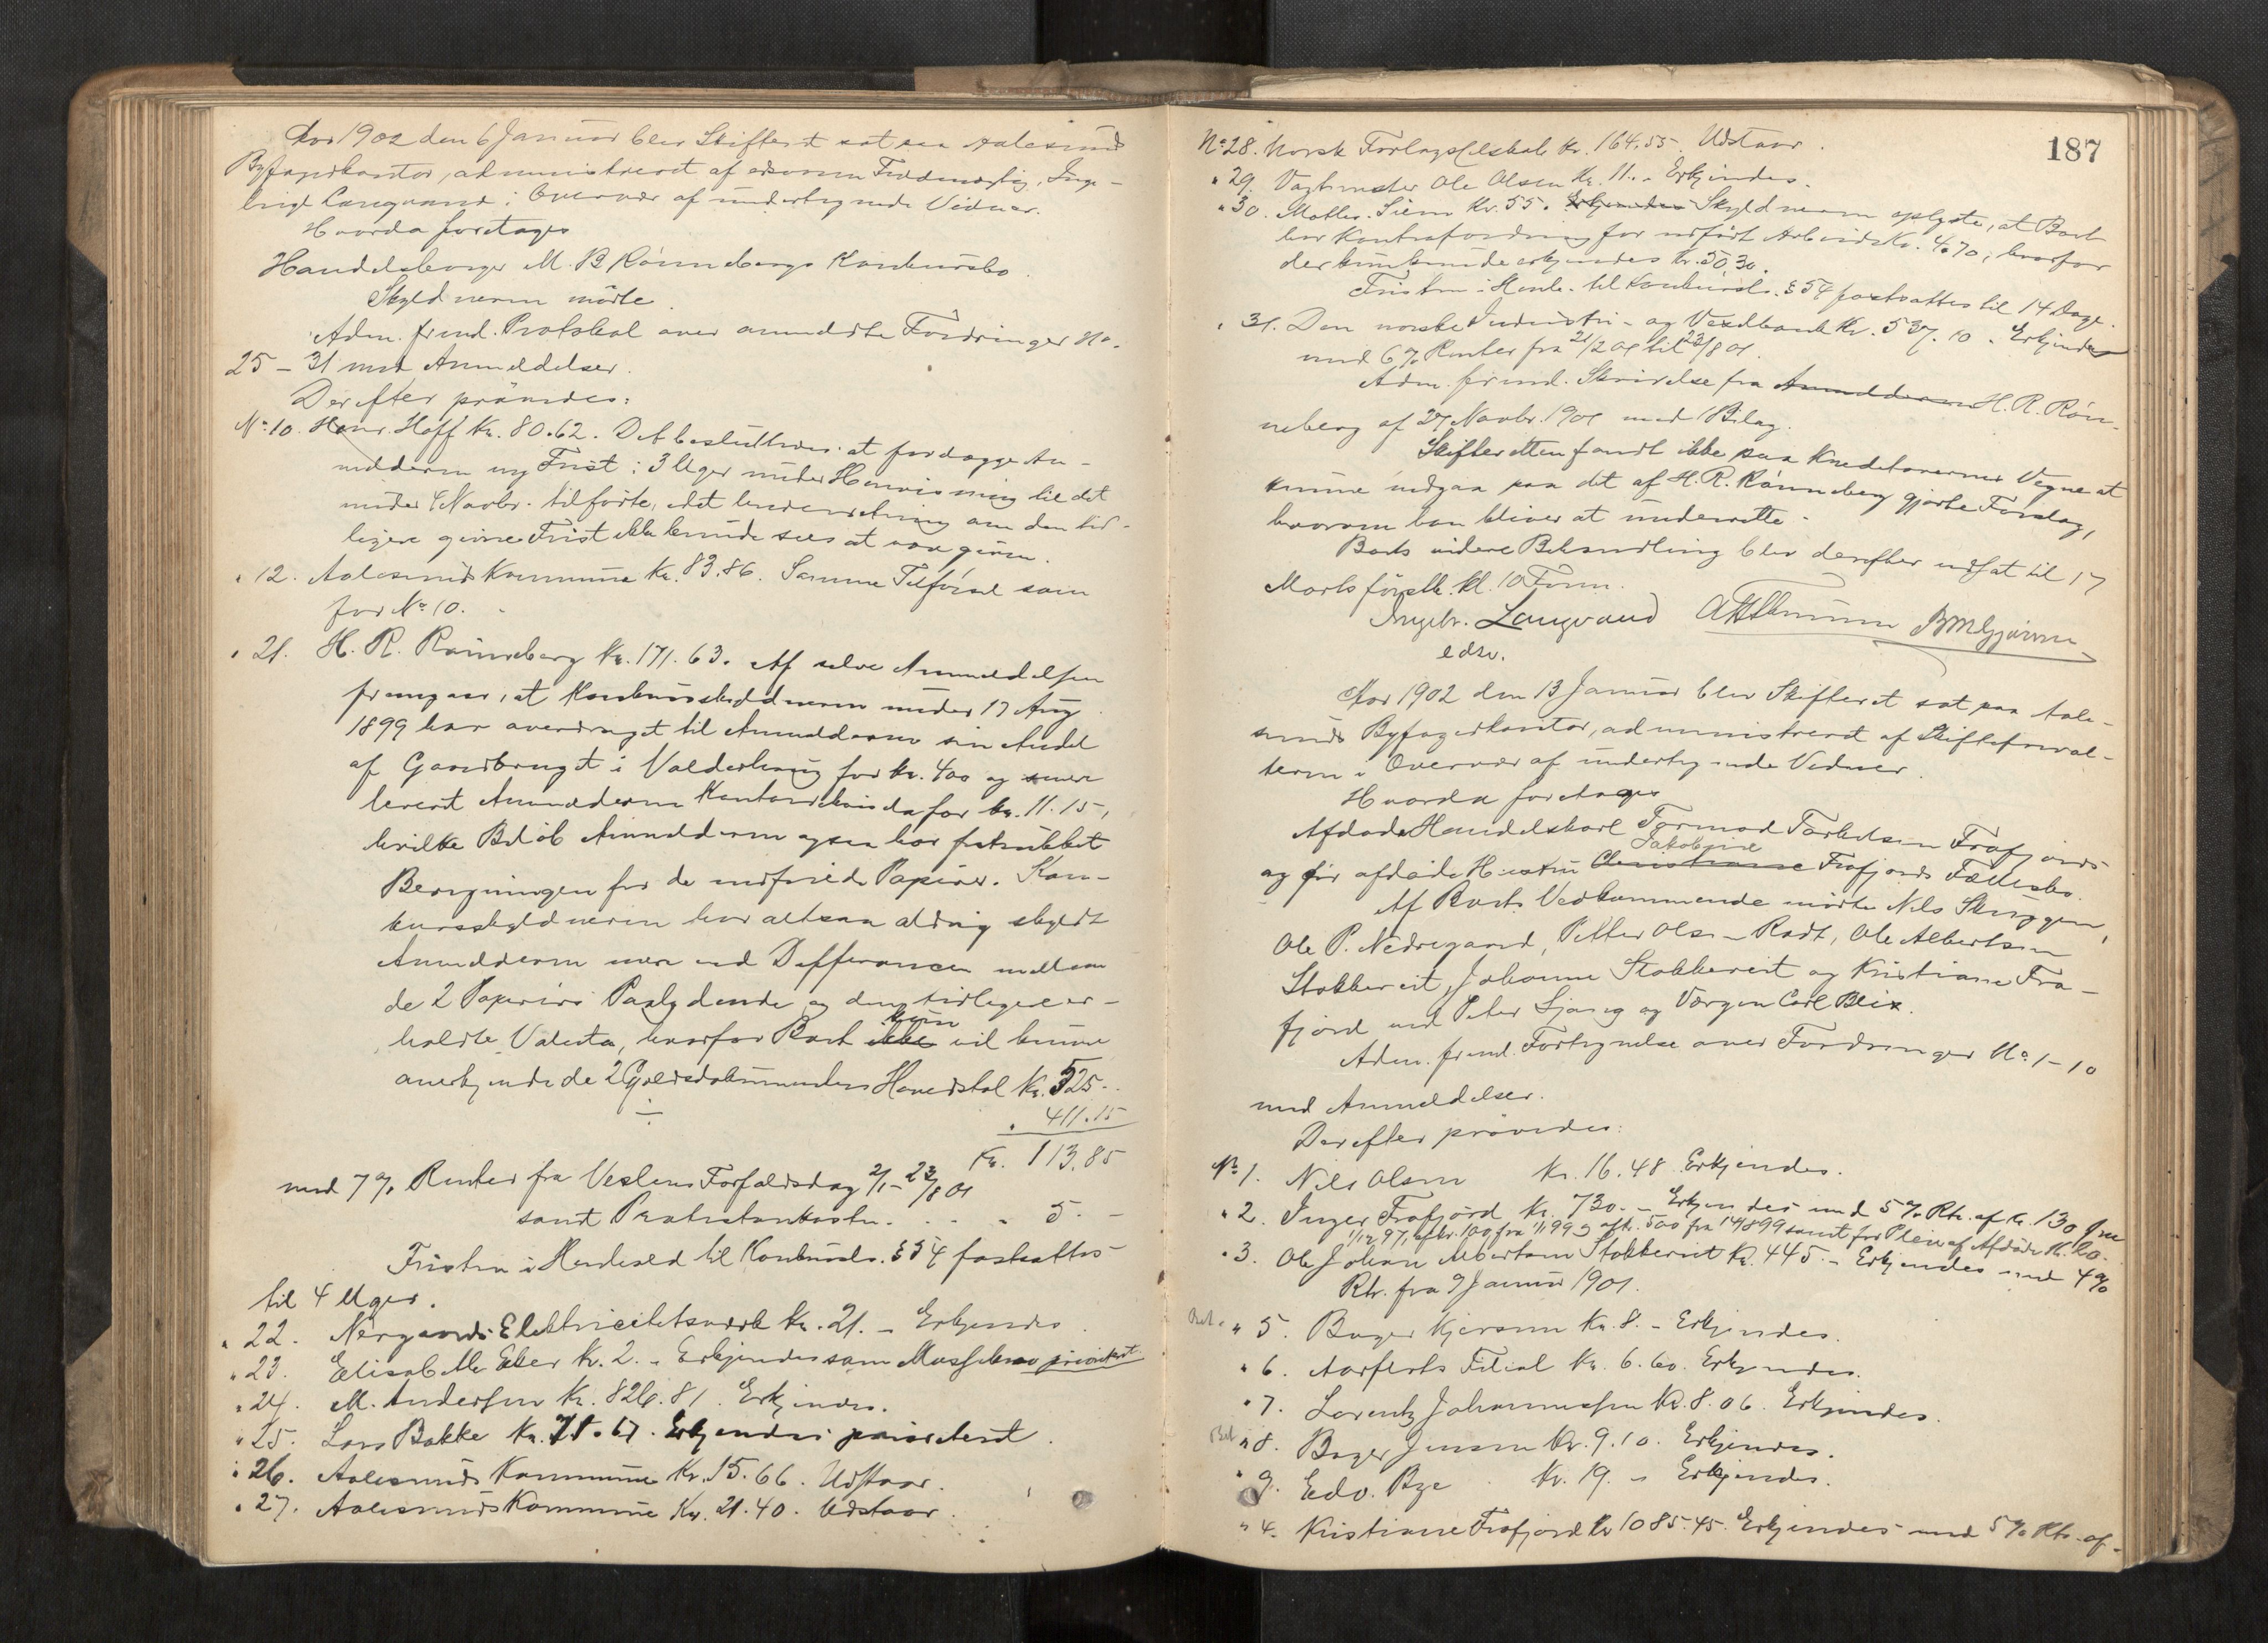 Aar 1902 den 6 Januar blev Skifteret sat paa Aalesunds
Byfogedkontor, administreret af edsvoren Fuldmægtig, Inge-
brigt Langvand i Overvær af undertegnede Vidner.
Hvorda foretoges
Handelsborger M. B. Rønnebergs Konkursbo.
Skyldneren mødte.
Adm. freml. Protokol over anmeldte Fordringer No.
25 – 31 med Anmeldelser.
Derefter prøvedes:
No. 10. Henr. Hoff Kr. 80.62. Det besluttedes at forelægge An-
melderen ny Frist i 3 Uger under Henvisning til det
under 4 Novbr. tilførte, idet Underretning om den tid-
ligere givne Frist ikke kunde sees at være given.
" 12. Aalesunds Kommune Kr. 83.86. Samme Tilførsel som
for No. 10.
" 21. H. R. Rønneberg Kr. 171.63. Af selve Anmeldelsen
fremgaar, at Konkursskyldneren under 17 Aug.
1899 har overdraget til Anmelderen sin Andel
af Gaardbruget i Valderhaug for Kr. 400 og
leveret Anmelderen for Kr. 11.15,
hvilke Beløb Anmelderen ogsaa har fratrukket
Beregningen for de indfriede Papirer. Kon-
kursskyldneren har altsaa aldrig skyldt
Anmelderen mere end Differancen mellem
de 2 Papirers Paalydende og den tidligere er-
holdte Valuta, hvorfor Boet ikke kun vil kunne
anerkjende de 2 Gjældsdokumenters Hovedstol Kr. 525.-
÷ " 411.15
Kr. 113.85
med 7 % Renter fra Vexlens Forfaldsdag 2/1 – 23/8 01
samt Protestomkostn. . . . " 5.-
Fristen i Henhold til Konkursl. § 54 fastsattes
til 4 Uger.
" 22. Nørgaards Elektricitetsværk Kr. 21.- Erkjendes.
" 23. Elisabeth Eker Kr. 2.- Erkjendes som Massekrav prioritert.
" 24. M. Andersen Kr. 826.81. Erkjendes.
" 25. Lars Bakke Kr. 71.67. Erkjendes prioriteret.
" 26. Aalesunds Kommune Kr. 15.66. Udstaar.
" 27. Aalesunds Kommune Kr. 21.40. Udstaar.
187
No. 28. Norsk Forlagsselskab Kr. 164.55. Udstaar.
" 29. Vagtmester Ole Olsen Kr. 11.- Erkjendes.
" 30. Mathr. Siem Kr. 55.- Erkjendes Skyldneren oplyste, at Boet
har Kontrafordring for udført Arbeide Kr. 4.70, hvorfor
der kun kunde erkjendes Kr. 50.30.
Fristen i Henh. til Konkursl. § 54 fastsattes til 14 Dage.
" 31. Den norske Industri- og Vexelbank Kr. 537.10. Erkjendes
med 6 % Renter fra 21/2 01 til 23/8 01.
Adm. freml. Skrivelse fra Anmelderen H. R. Røn-
neberg af 27 Novbr. 1901 med 1 Bilag.
Skifteretten fandt ikke paa Kreditorernes Vegne at
kunne indgaa paa det af H. R. Rønneberg gjorte Forslag,
hvorom han bliver at underrette.
Boets videre Behandling blev derefter udsat til 17
Marts førstk. kl. 10 Form.
Ingebr. Langvand
edsv.
Aar 1902 den 13 Januar blev Skifteret sat paa Aale-
sunds Byfogedkontor, administreret af Skifteforval-
teren i Overvær af undertegnede Vidner.
Hvorda foretoges
Afdøde Handelskarl Tormod Torkelsen Frafjords
og før afdøde Hustru Christiane Jakobine Frafjords Fællesbo.
Af Boets Vedkommende mødte Nils Skuggen,
Ole P. Nedregaard, Petter Olsen Rødt, Ole Albertsen
Stokkereit, Johanne Stokkereit og Kristiane Fra-
fjord ved Peter og Værgen Carl Blix.
Adm. freml. Fortegnelse over Fordringer No. 1 – 10
med Anmeldelser.
Derefter prøvedes:
No. 1. Nils Olsen Kr. 16.48. Erkjendes.
" 2. Inger Frafjord Kr. 730.- Erkjendes med 5 % Rtr. af Kr. 130 fra
1/12 97, af Kr. 100 fra 1/1 99 og af Kr. 500 fra 14/8 99 samt for Pleie af Afdøde Kr. 20.-
" 3. Ole Johan Albertsen Stokkereit Kr. 445.- Erkjendes med 4 %
Rtr. fra 9 Januar 1901.
Bet. " 5. Bager Kjersem Kr. 8.- Erkjendes.
" 6. Aarflots Filial Kr. 6.60. Erkjendes.
" 7. Lorentz Johannessen Kr. 8.06. Erkjendes.
Bet " 8. Bager Jensen Kr. 9.10. Erkjendes.
" 9. Edv. Bye Kr. 19.- Erkjendes.
" 4. Kristiane Frafjord Kr. 1085.45. Erkjendes med 5 % Rtr. af